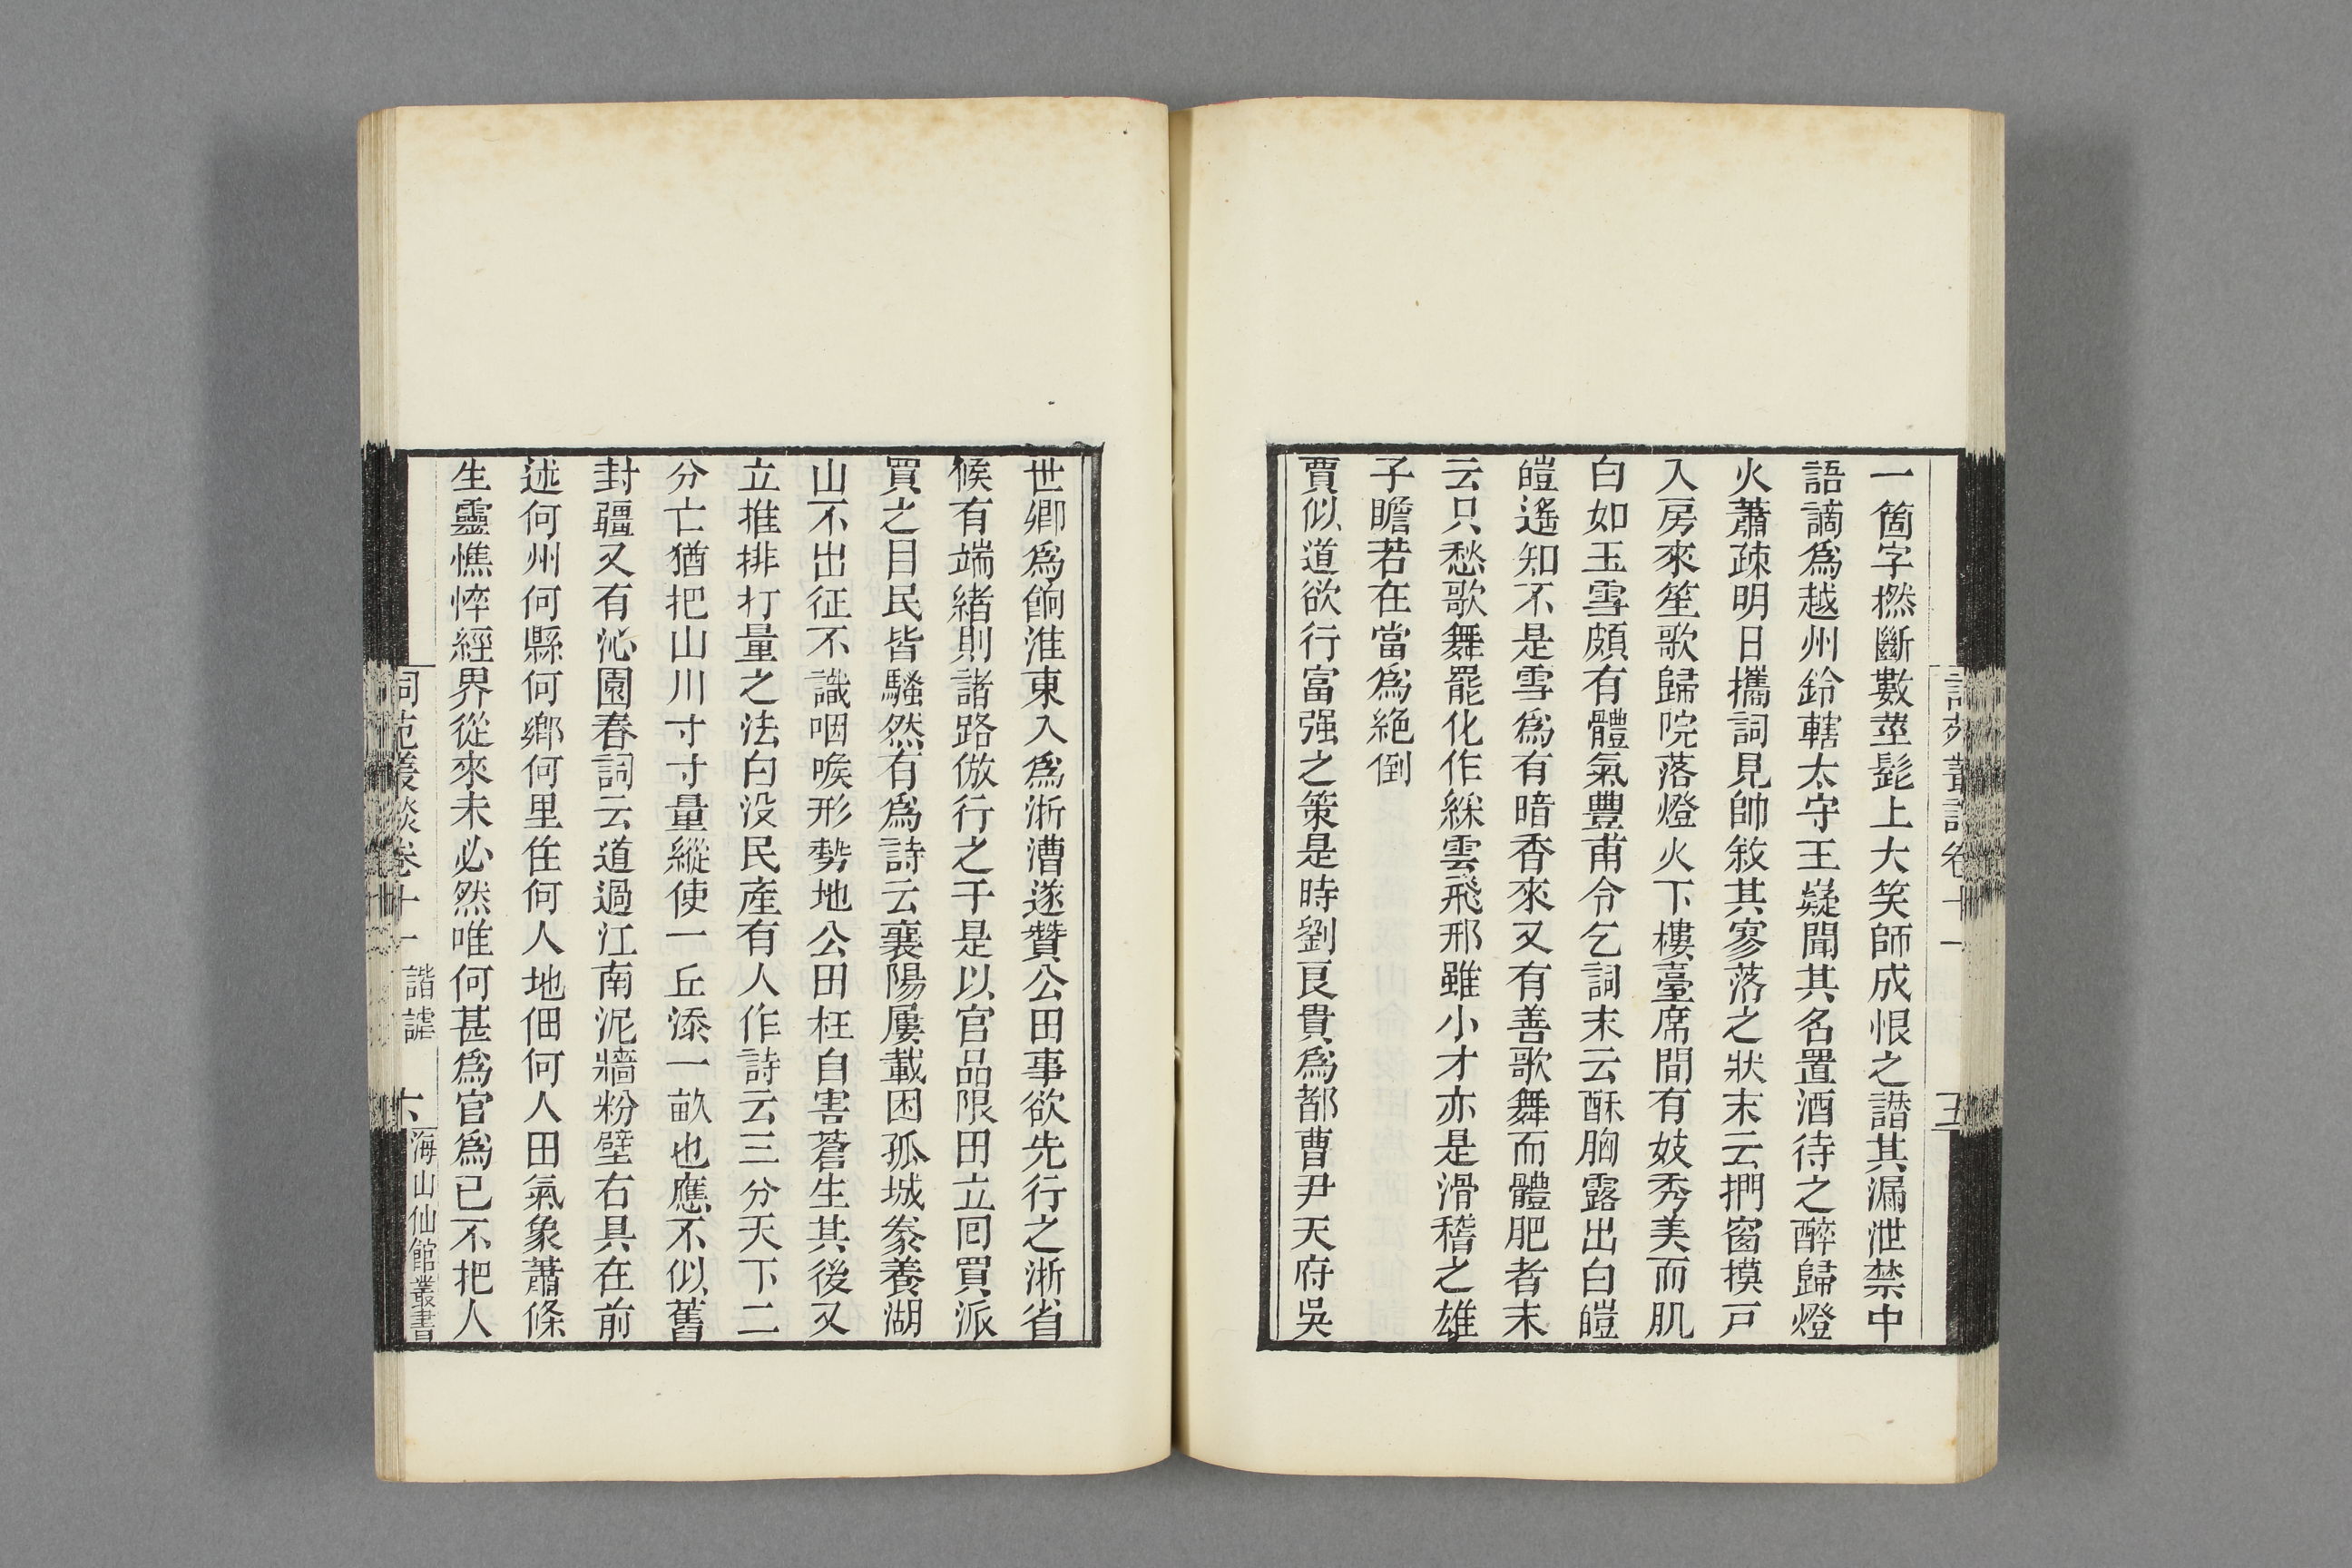 一箇字撚斷數莖髭上大笑師成恨之譖其漏泄禁中
語謫爲越州鈐轄太守王嶷聞其名置酒待之醉歸燈
火蕭疎明日攜詞見帥敘其寥落之狀末云捫窗摸戸
入房來笙歌歸院落燈火下樓臺席間有妓秀美而肌
白如玉雪頗有體氣豐甫令乞詞末云酥胸露出白皚
皚遙知不是雪爲有暗香來又有善歌舞而體肥者末
云只愁歌舞罷化作綵雲飛邢雖小才亦是滑稽之雄
子瞻若在當爲絶倒
賈似道欲行富强之策是時劉良貴爲都曹尹天府吳
世卿爲餉淮東入爲浙漕遂贊公田事欲先行之浙省
候有端緒則諸路倣行之于是以官品限田立回買派
買之目民皆騷然有爲詩云襄陽屢載困孤城豢養湖
山不出征不識咽喉形勢地公田枉自害蒼生其後又
立推排打量之法白没民產有人作詩云三分天下二
分亡猶把山川寸寸量縱使一丘添一畝也應不似舊
封疆又有沁園春詞云道過江南泥牆粉壁右具在前
述何州何縣何鄉何里住何人地佃何人田氣象蕭條
生靈憔悴經界從來未必然唯何甚爲官爲已不把人
詞苑叢談卷十一 諧謔 六 海山仙館叢書